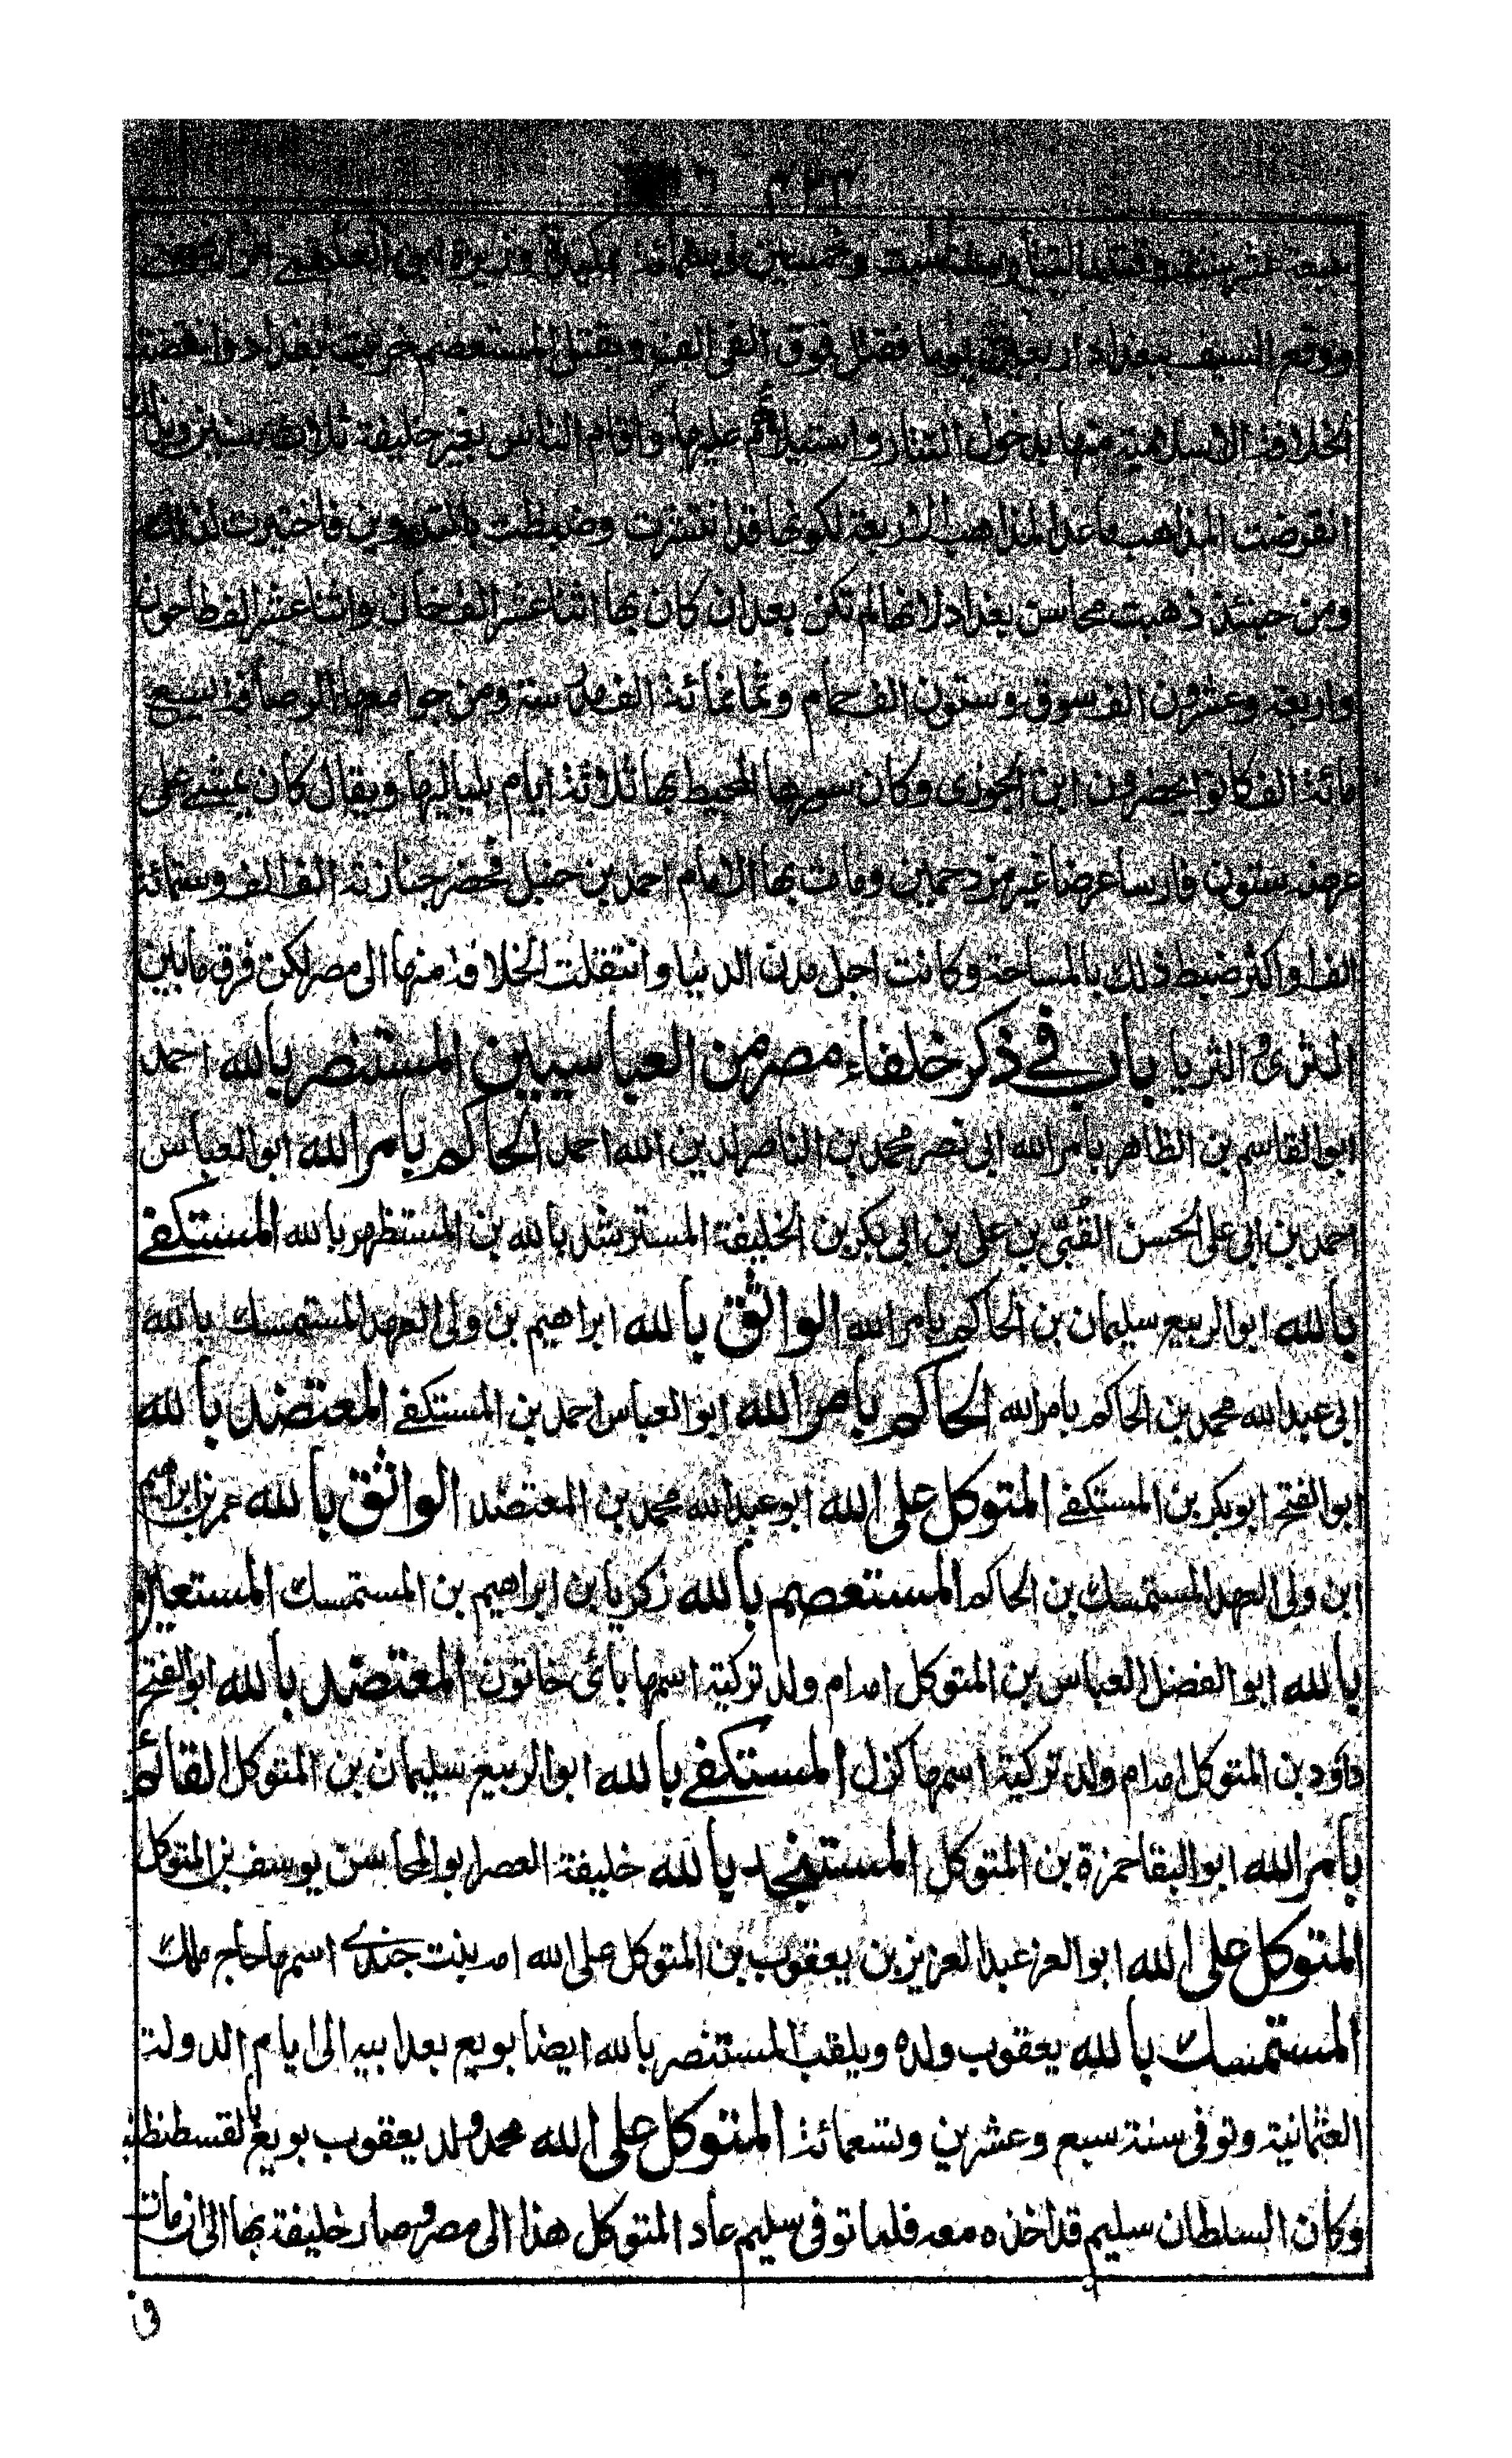 ٣٢٣
وقتله التتار سنة ست وخمسين وستمائة بمكيدة وزيره ابن العلقمي الرافضي
ووقع السيف ببغداد اربعين يوما فقتل فوق الفى الف وبقتل المستعصم خربت بغداد وانقضت
الخلافة الاسلامية منها بدخول التتار واستيلائهم عليها واقام الناس بغير خليفة ثلاث سنين
انقرضت المذاهب ماعدا المذاهب الاربعة لكونها قد انتشرت وضبطت بالتدوين فاختيرت لذلك
ومن حينئذ ذهبت محاسن بغداد لانها لم تكن بعد ان كان بها اثنا عشر الف خان واثنا عشر الف طاحون
واربعة وعشرون الف سوق وستون الف حمام وثمانمائة الف مدرسة ومن جوامعها الرصافة يسع
مائة الف كانوا يحضرون ابن الجوزى وكان سورها المحيط بها ثلاثة ايام بلياليها ويقال كان يمشي على
عرضه ستون فارسا عرضا غير مزدحمين ومات بها الامام احمد بن حنبل فحضر جنازته الف الف وستمائة
الف او اكثر ضبط ذلك بالمساحة وكانت اجل مدن الدنيا وانتقلت الخلافة منها الى مصر لكن فرق مابين
الثرى والثريا باب في ذكر خلفاء مصر من العباسيين المستنصر بالله احمد
ابو القاسم بن الظاهر بامر الله ابى نصر محمد بن الناصر لدين الله احمد الحاكم بامر الله ابو العباس
احمد بن ابى على الحسن القبى بن على بن ابى بكر بن الخليفة المسترشد بالله بن المستظهر بالله المستكفي
بالله ابو الربيع سليمان بن الحاكم بامر الله الواثق بالله ابراهيم بن ولى العهد المستمسك بالله
ابى عبد الله محمد بن الحاكم بامر الله الحاكم بامر الله ابو العباس احمد بن المستكفي المعتضد بالله
ابو الفتح ابو بكر بن المستكفي المتوكل على الله ابو عبد الله محمد بن المعتضد الواثق بالله عمر بن ابراهيم
ابن ولى العهد المستمسك بن الحاكم المستعصم بالله زكريا بن ابراهيم بن المستمسك المستعين
بالله ابو الفضل العباس بن المتوكل امه ام ولد تركية اسمها بائى خاتون المعتضد بالله ابو الفتح
داؤد بن المتوكل امه ام ولد تركية اسمها كزل المستكفي بالله ابو الربيع سليمان بن المتوكل القائم
بامر الله ابو البقا حمزة بن المتوكل المستنجد بالله خليفة العصر ابو المحاسن يوسف بن المتوكل
المتوكل على الله ابو العز عبد العزيز بن يعقوب بن المتوكل على الله امه بنت جندي اسمها حاج ملك
المستمسك بالله يعقوب ولده ويلقب المستنصر بالله ايضا بويع بعد ابيه الى ايام الدولة
العثمانية وتوفى سنة سبع وعشرين وتسعمائة المتوكل على الله محمد ولد يعقوب بويع بالقسطنطنية
وكان السلطان سليم قد اخذه معه فلما توفى سليم عاد المتوكل هذا الى مصر وصار خليفة بها الى ان مات
في